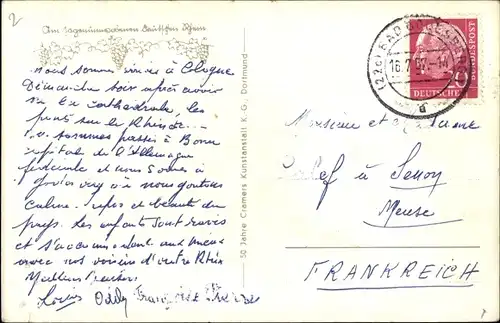 2
Am sagenumwobenen deutschen Rhein
nous sommes arrivés à Cologne
Dimanche soir après avoir
vu la cathédrale, les
ponts sur le Rhin
sommes passés à Bonn
capitale de l'Allemagne
et nous sommes à
où nous goûtons
calme repos et beauté du
pays. Les enfants sont ravis
et s'accommodent au mieux
avec nos voisins d'outre Rhin
Meilleurs baisers
Louis Odily Françoise Pierre
50 Jahre Cramers Kunstanstalt K. G., Dortmund
(22c) BAD GODESBERG
16.7.
d
20
DEUTSCHE
BUNDESPOST
Monsieur et Madame
à Senon
Meuse
FRANKREICH